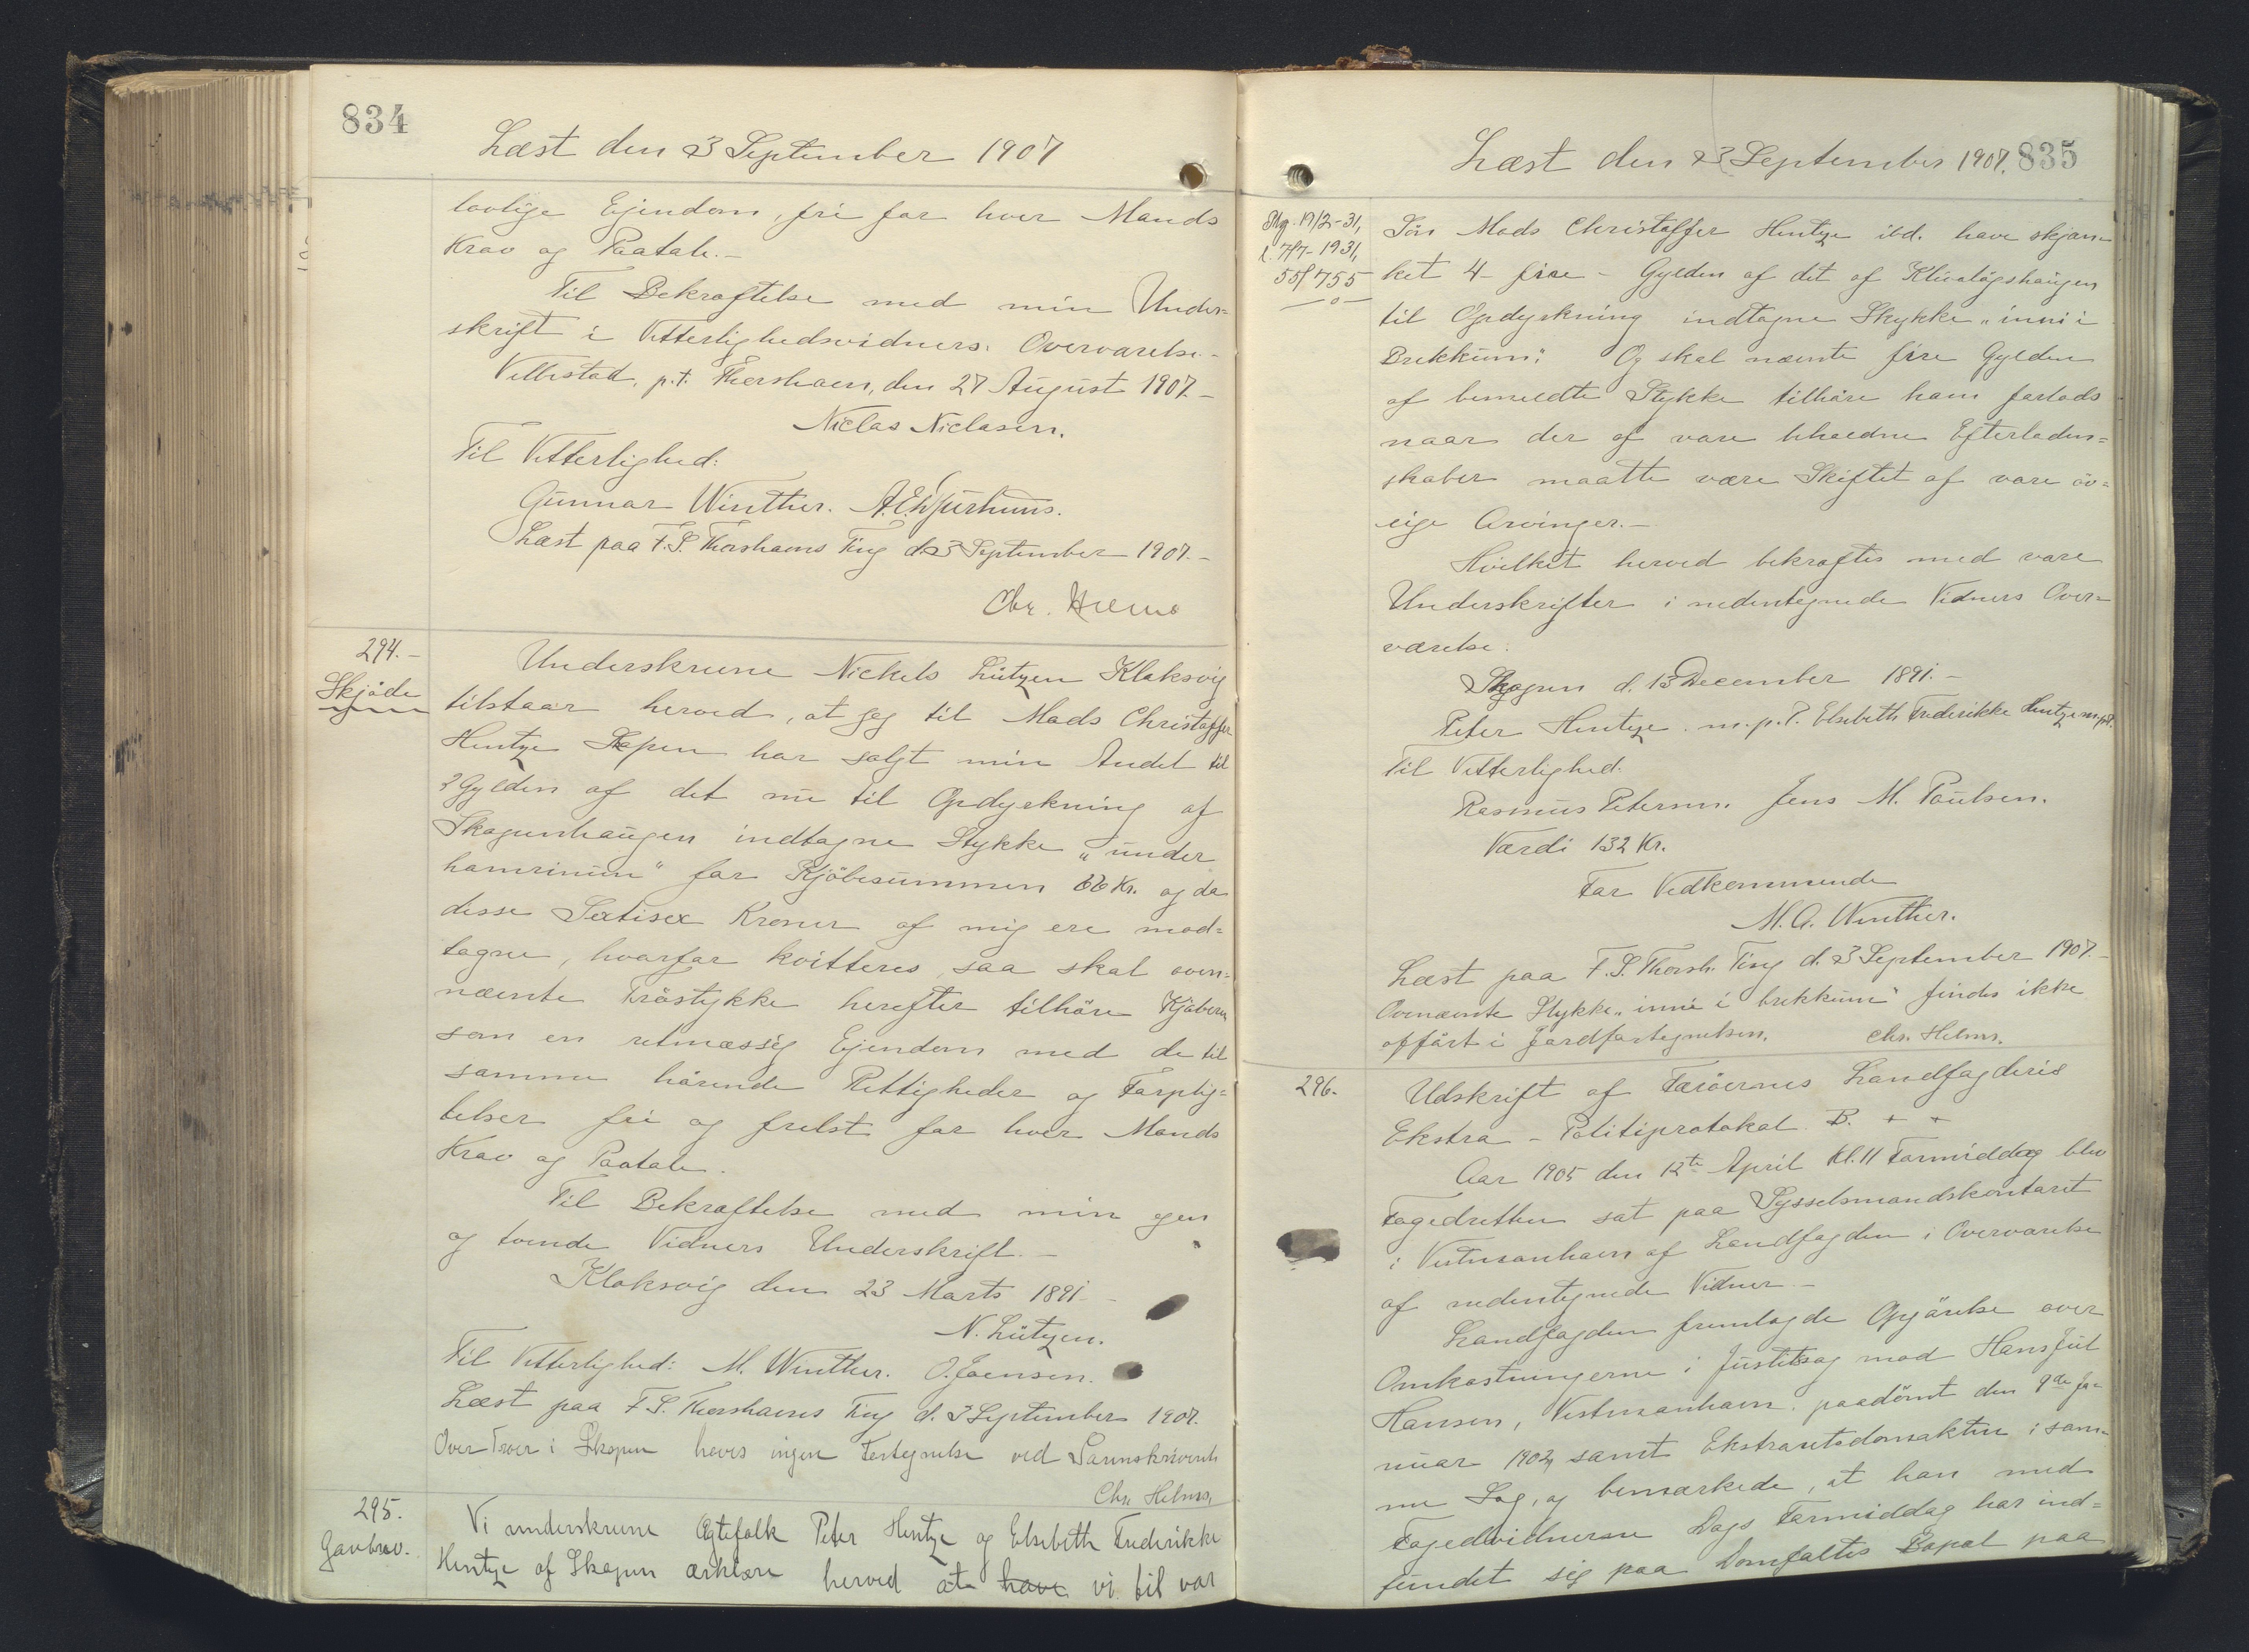 834
Læst den 3 September 1907
lovlige Ejendom, fri for hver Mands
Krav og Paatale.-
Til Bekræftelse med min Under=
skrift i Vitterlighedsvidners Overværelse.-
Velbestad, p.t. Thorshavn, den 27 August 1907.-
Niclas Niclasen.
Til Vitterlighed:
Gunnar Winther.
Læst paa F.S. Thorshavns Ting d. 3 September 1907.-
Chr. Helms
294.-
Skjöde
Underskrevne Nickels Lützen Klaksvig
tilstaar herved, at jeg til Mads Christoffer
Hentze Skopen har solgt min Andel til
2 Gylden af det nu til Opdyrkning af
Skopunhaugen indtagne Stykke „under
hamrinum" for Kjöbesummen 66 Kr. og da
disse Sextisex Kroner af mig ere mod=
tagne, hvorfor kvitteres, saa skal oven=
nævnte Tröstykke herefter tilhöre Kjöberen
som en retmæssig Ejendom med de til
samme hörende Rettigheder og Forplig=
telser fri og frelst for hver Mands
Krav og Paatale.
Til Bekræftelse med min egen
og tvende Vidners Underskrift.-
Klaksvig den 23 Marts 1891.-
N. Lützen.
Til Vitterlighed: M. Winther. O. Joensen.
Læst paa F.S. Thorshavns Ting d. 3 September 1907.
Over Tröer i Skopen haves ingen Fortegnelse ved Sorenskriverembe
Chr. Helms,
295.
Gavebrev.
Vi underskrevne Ægtefolk Peter Hentze og Elsebeth Frederikke
Hentze af Skopun erklære herved at have vi til vor
Læst den 3 September 1907. 835
19/2-31,
l. 7/7-1931,
55/755
-o-
Sön Mads Christoffer Hentze ibd. have skjæn=
ket 4 - fire - Gylden af det af Klivalögshaugen
til Opdyrkning indtagne Stykke „inni i
Brekkum". Og skal nævnte fire Gylden
af bemeldte Stykke tilhöre ham forlods
naar der af vore beholdne Efterladen=
skaber maatte være Skiftet af vore öv=
rige Arvinger.-
Hvilket herved bekræftes med vore
Underskrifter i nedentegnede Vidners Over=
værelse:
Skopun d. 13 December 1891.-
Peter Hentze. m.p.P. Elsebeth Frederikke Hentze m.p.P.
Til Vitterlighed.
Rasmus Petersen. Jens M. Poulsen.
Værdi 132 Kr.
For Vedkommende
M. A. Winther.
Læst paa F.S. Thorsh. Ting d. 3 September 1907.-
Ovennævnte Stykke „inni i brekkum" findes ikke
opfört i Jordfortegnelsen. Chr. Helms.
296.
Udskrift af Færöernes Landfogderis
Ekstra - Politiprotokol. B. + +
Aar 1905 den 12te April Kl. 11 Formiddag blev
Fogedretten sat paa Sysselmandskontoret
i Vestmanhavn af Landfogden i Overværelse
af nedentegnede Vidner.-
Landfogden fremlagde Opgörelse over
Omkostningerne i Justitssag mod Hans Jul
Hansen, Vestmanhavn, paadömt den 9de Ja=
nuar 1902, samt Ekstraretsdomsakten i sam=
me Sag, og bemærkede, at han med
Fogedvidnerne Dags Formiddag har ind=
fundet sig paa Domfæltes Bopæl paa